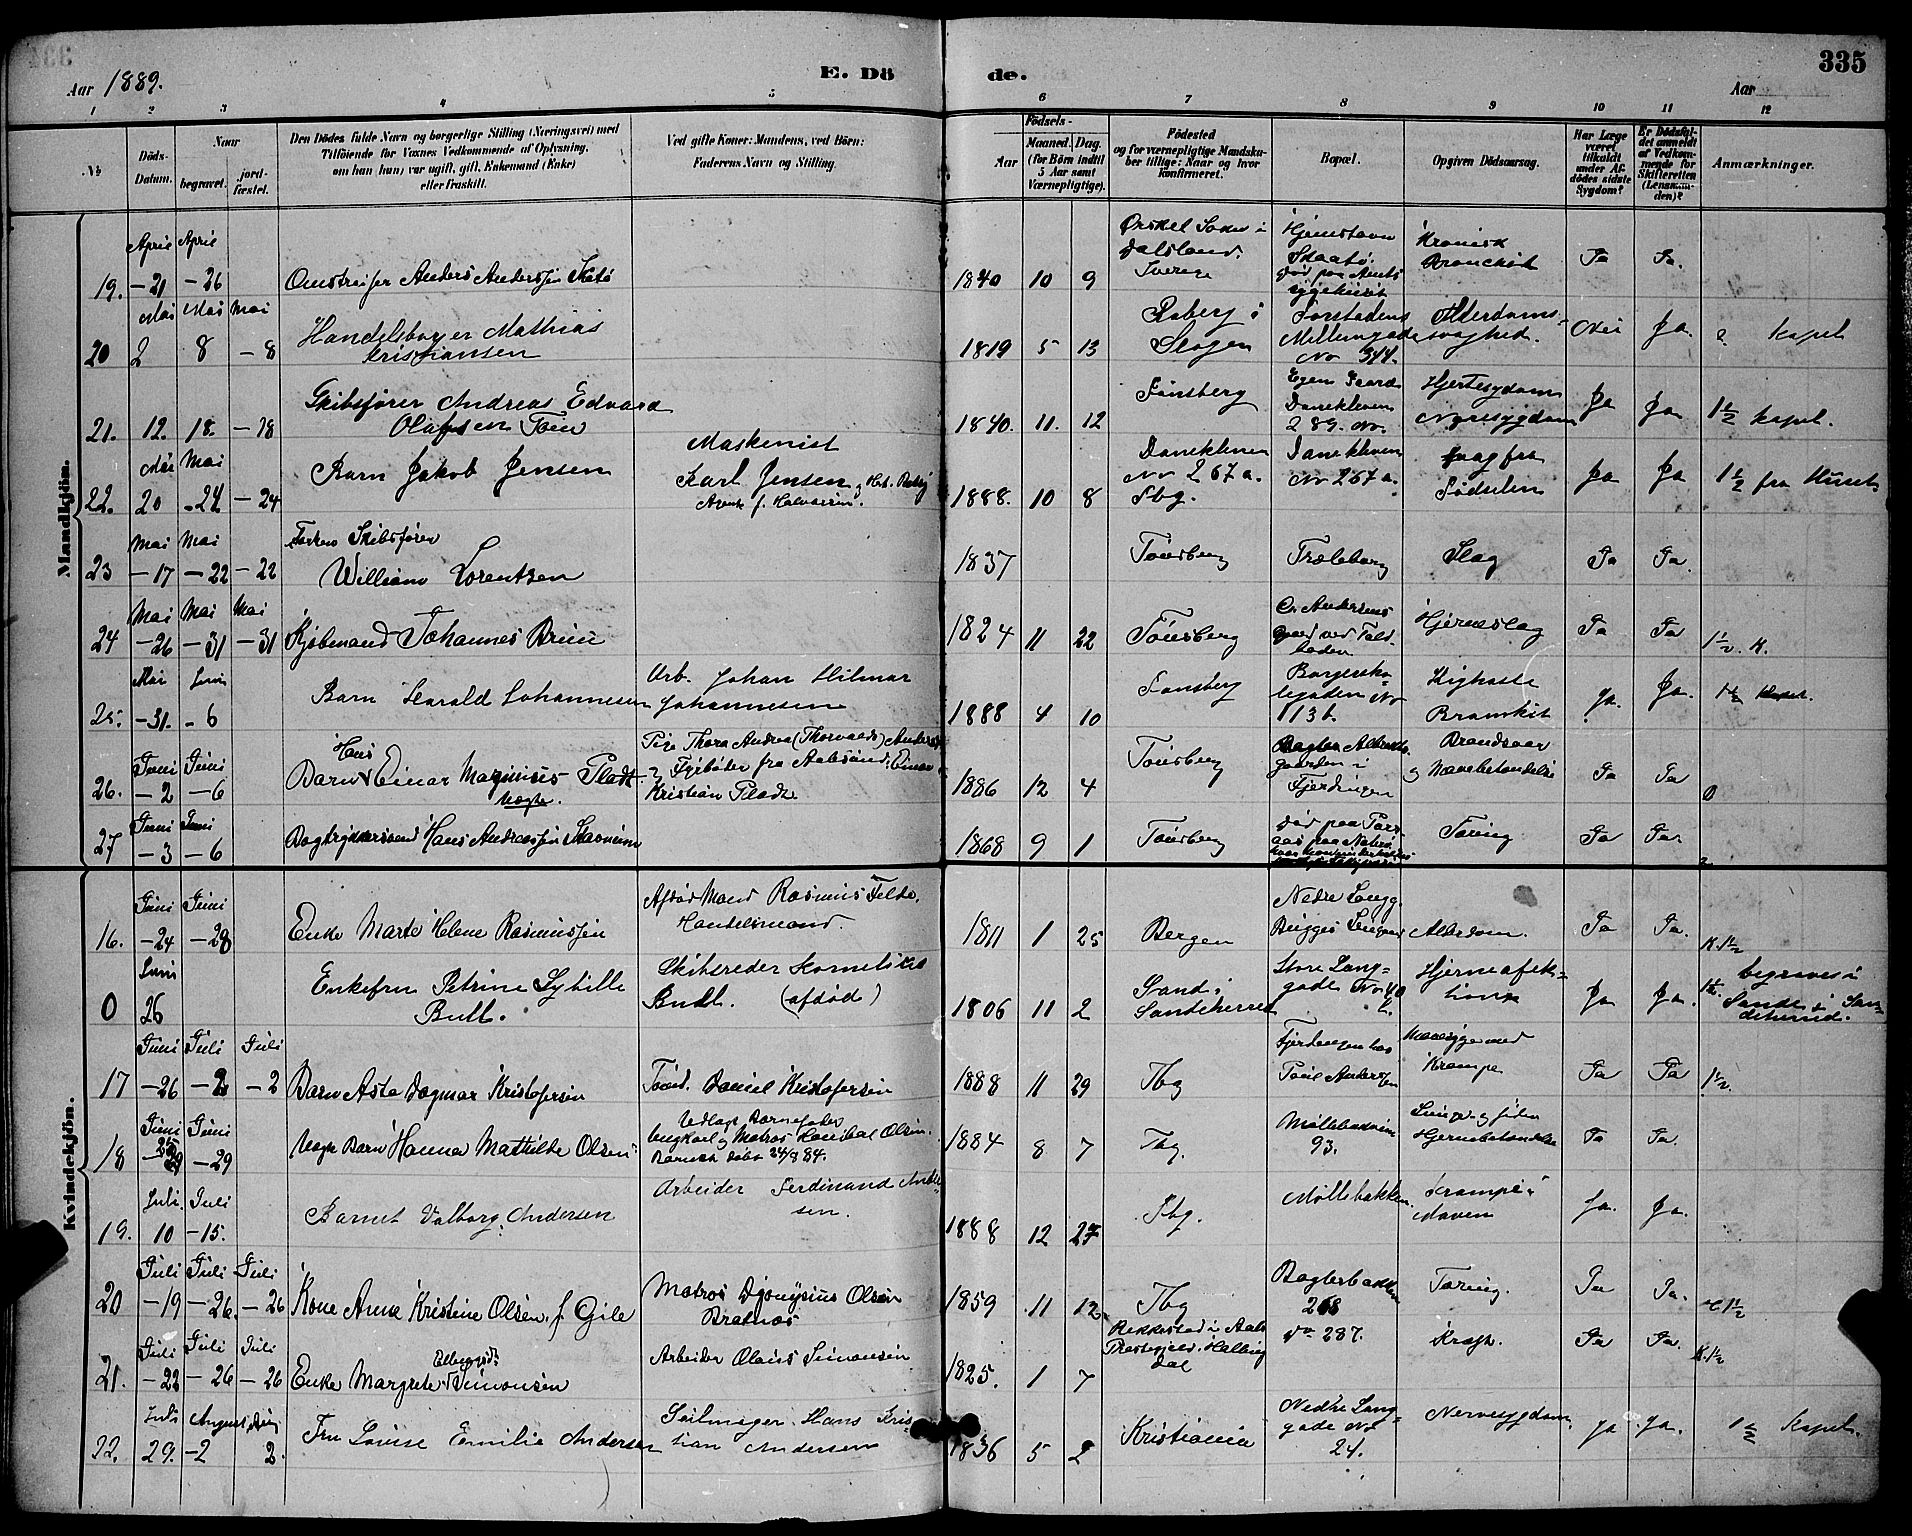 335
Aar 1889.
E. Dö
de.
Aar
1 2 3 4 5 6 7 8 9 10 11 12
No
Döds-Datum.
Naar
begravet.
jord-fæstet.
Den Dödes fulde Navn og borgerlige Stilling (Næringsvei) med
Tilföiende for Voxnes Vedkommende af Oplysning,
om han (hun) var ugift, gift, Enkemand (Enke)
eller fraskilt.
Ved gifte Koner: Mandens, ved Börn:
Faderens Navn og Stilling.
Födsels-
Aar
Maaned. Dag.
(for Börn indtil
5 Aar samt
Værnepligtige).
Födested
og for værnepligtige Mandska-
ber tillige: Naar og hvor
konfirmeret.
Bopæl.
Opgiven Dödsaarsag.
Har Læge
været
tilkaldt
under Af-
dödes sidste
Sygdom?
Er Dödsfal-
det anmeldt
af Vedkom-
mende for
Skifteretten
(Lensman-
den)?
Anmærkninger.
Mandkjön.
April April
19. -21 -26 Omstreifer Anders Andersen 1840 10 9 Sogn i Dalsland. Sverige Hjemstavn Skaatø. død paa Amts sygehuset Kronisk Bronchit Ja Ja.
Mai Mai Mai
20 2 8 -8 Handelsborger Mathias Kristiansen 1819 5 13 Roberg i Slagen Forstadens Mellemgade No 344. Alderdoms-svaghed. Nei Ja. 2 Kapel
21. 12. 18. -18 Skibsfører Andreas Edvard Olafsen 1840. 11. 12 Tønsberg Egen Gaard Danekleven 289. No. Hjertesygdom Nyresygdom Ja Ja 1½ Kapel.
Mai Mai
22. 20 -24 -24 Barn Jakob Jensen Maskenist Karl Jensen 1888. 10 8 Danekleven No 267a. Tbg. Danekleven No 267a. svag fra Fødselen Ja Ja 1½ fra Huset
Mai Mai
23 -17 -22 -22 Skibsfører William Lorentzen 1837 Tønsberg Træleborg Slag Ja Ja.
Mai Mai Mai
24 -26 -31 -31 Kjøbmand Johannes Bruu 1824 11 22 Tønsberg Andersens gaard ved Toldboden Hjerneslag Ja Ja 1½. K.
Mai Juni
25. -31. -6 Barn Harald Johannesen Arb. Johan Hilmar Johannesen 1888 4 10 Tønsberg Borgerskolegaden No 113b. Kighoste Bronkit Ja. Ja. 1½ Kapel.
Juni Juni
26. -2 -6 Hans Barn Einar Magnus Pladt. Uægte. Pige Thora Andrea (Thorvalds) og Fyrbøder fra Aalesund: Einar Kristian Pladt 1886 12 4 Tønsberg i Fjerdingen Brandsaar og Ja Ja 0
Juni Juni
27 -3 -6 Bogtrykkersvend Hans Andreassen 1868 9 1 Tønsberg Tæring Ja Ja. 2
Kvindekjön.
Juni Juni
16. -24 -28 Enke Marte Helene Rasmussen Afdød Mand Rasmus Handelsmand. 1811 1 25 Bergen Nedre Langg. Alderdom. Ja Ja. K. 1½
Juni
0 26 Enkefru Petrine Sybille Bull. Skibsreder Kornelius Bull. (afdød) 1806 11 2 Sand i Sandeherred Store Langgade No 40 Hjerneafektion Ja Ja. 1½. begraves i Sande i Sandeherred.
Juni Juli Juli
17 -26 -2 -2 Barn Asta Dagmar Kristofersen Daniel Kristofersen 1888 11 29 Tbg Fjerdingen hos Poul Andersen Mavesyge med Krampe Ja Ja 1½.
Juni Juni
18 -29 Uægte Barn Hanna Mathilde Olsen Udlagt Barnefader Ungkarl og Matros Hanibal Olsen. Barnet døbt 24/8 84. 1884 8 7 Tbg. Møllebakken 93. Lunge- og siden Hjernebetændelse Ja Ja.
Juli Juli
19. 10 -15. Barnet Valborg Andersen Arbeider Ferdinand Andersen. 1888 12 27 Tbg. Møllebakken Krampe i Maven Ja. Ja.
Juli Juli Juli
20 -19 -26. -26 Kone Anne Kristine Olsen, f Gile Matros Djonysius Olsen Bratnæs 1859 11 12 Tbg Baglerbakken 268 Tæring. Ja Ja. K 1½
Juli Juli Juli
21. -22 -26 -26 Enke Margrete Simonsen Arbeider Olaus Simonsen 1825. 1 7 Rekkestad i Aals Præstegjeld. Halling dal No 287. Kræft. Ja Ja K. 1½
Juli August
22. 29. -2 2. Fru Lovise Emilie Andersen Seilmager Hans Kristian Andersen 1836 5 2 Kristiania Nedre Langgade No 24. Nervesygdom Ja Ja. 1½ Kapel.